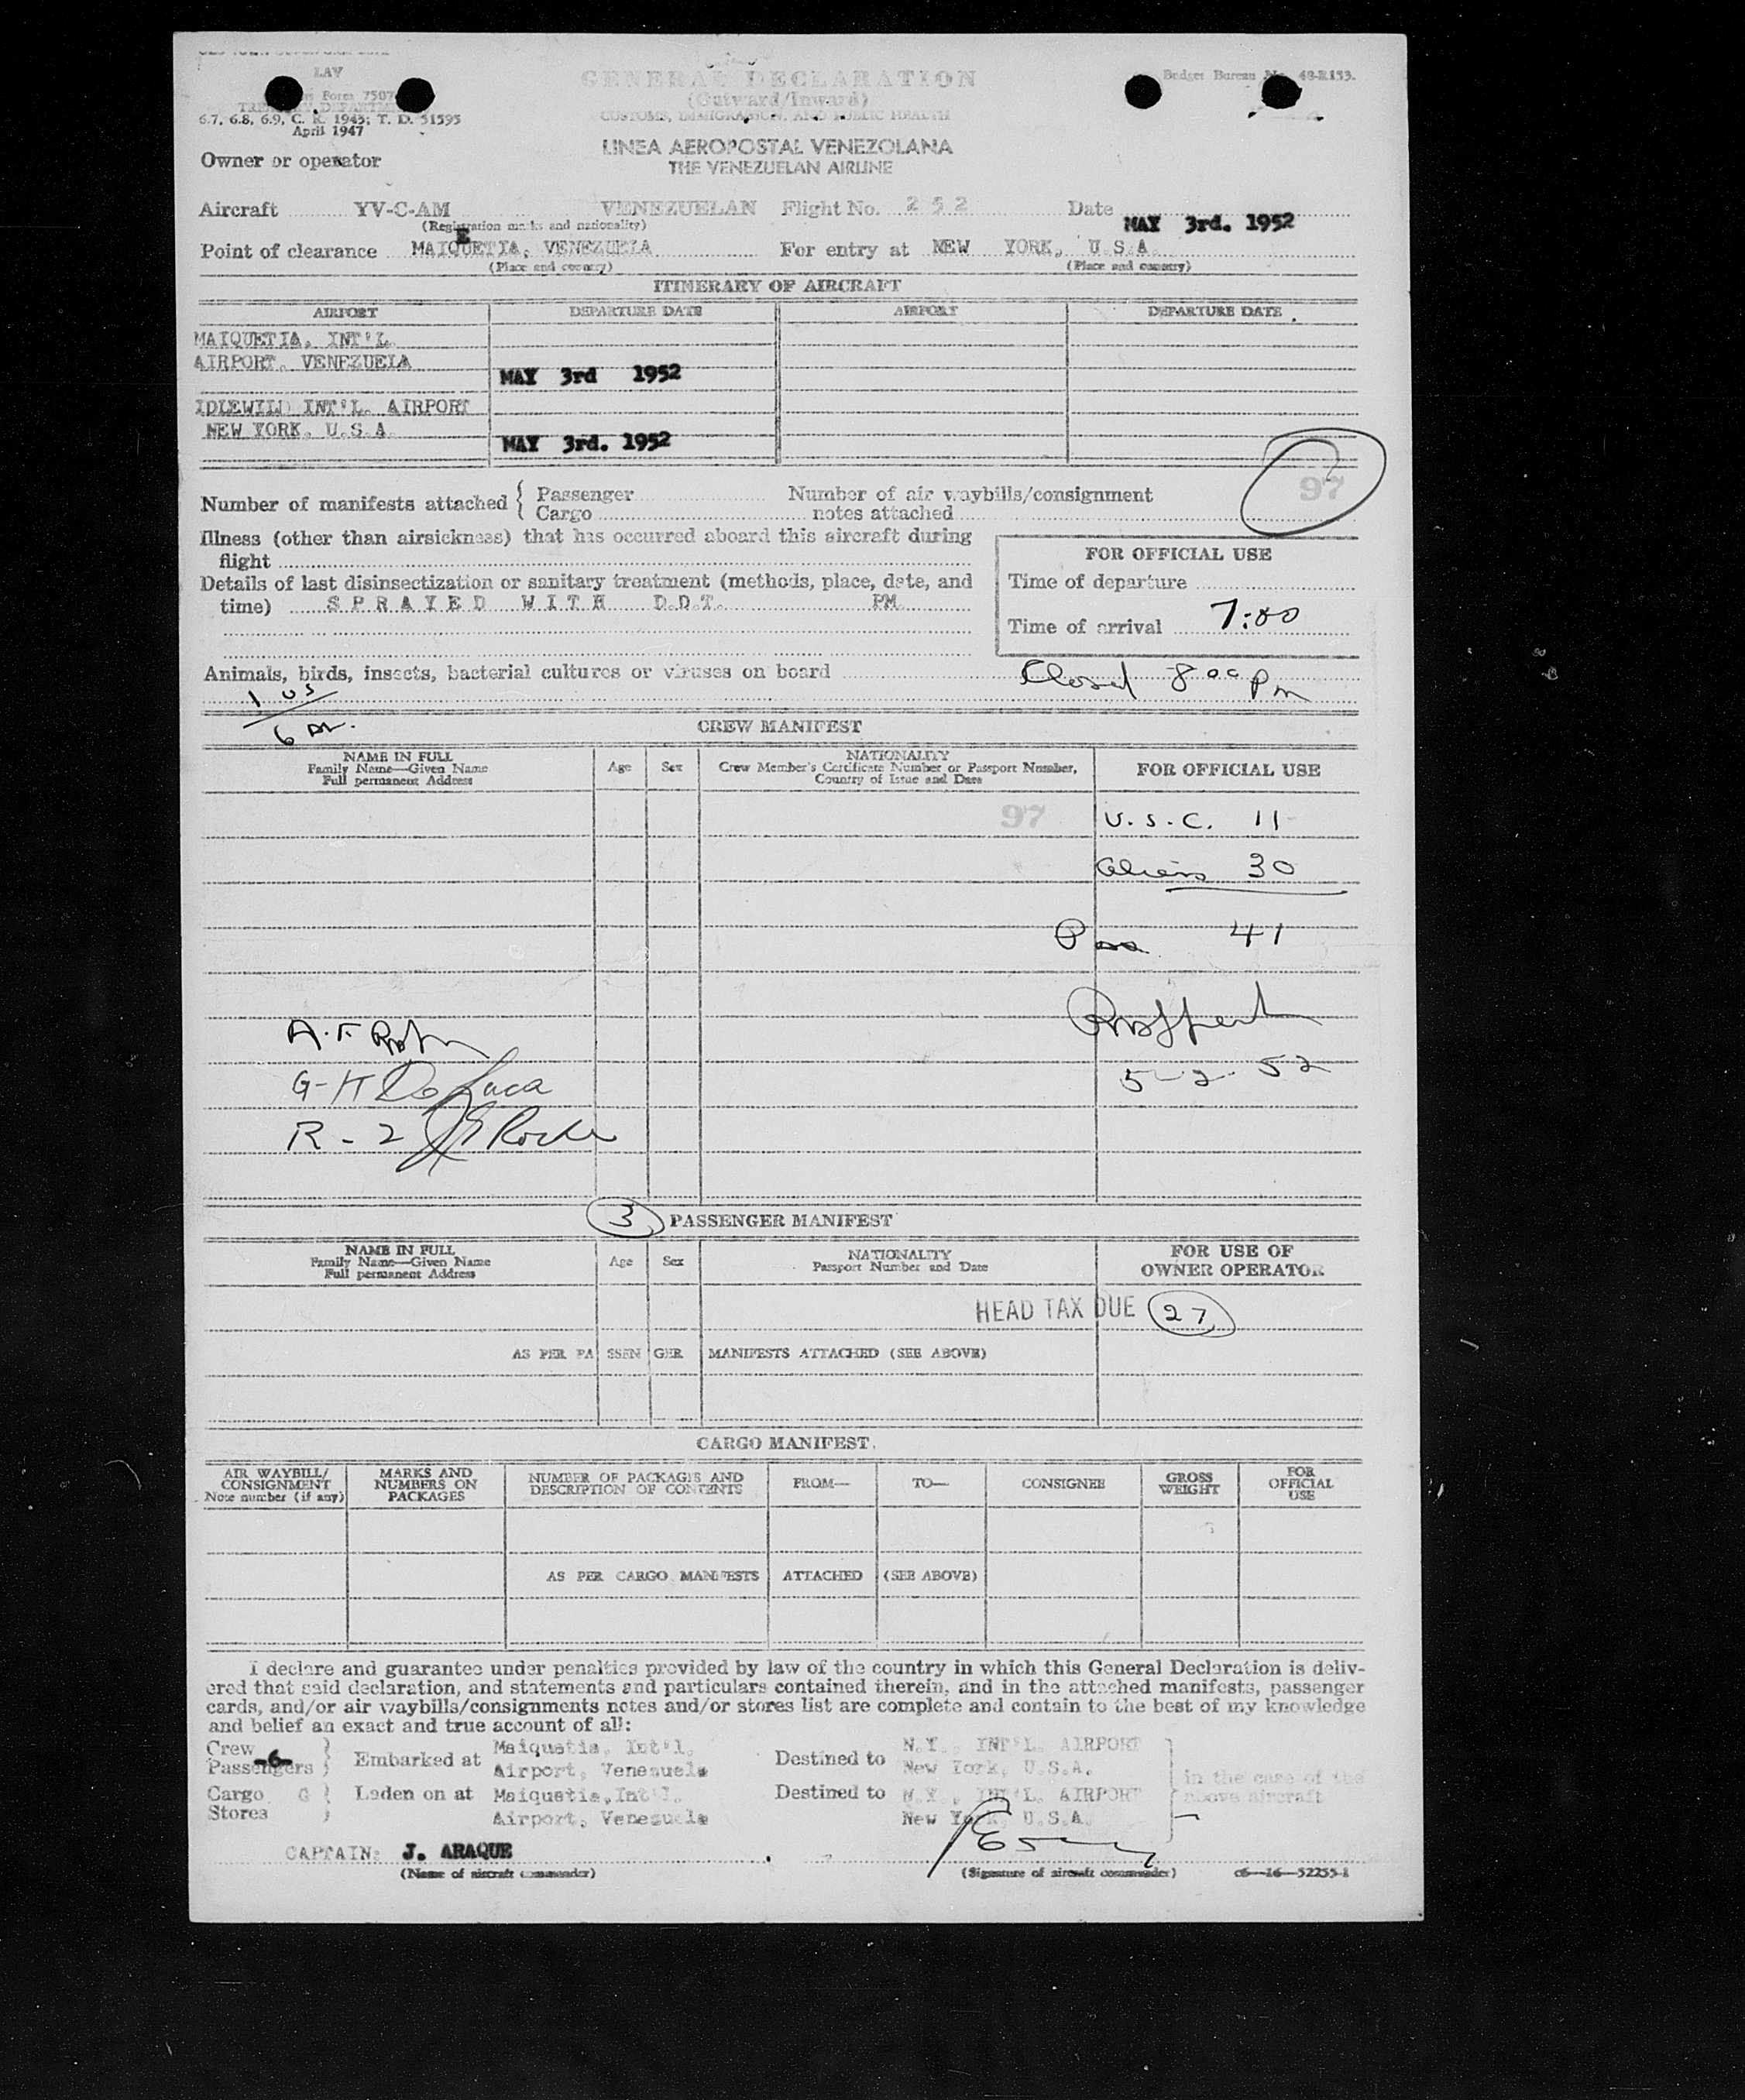 LAV
Form 7507
TREASURY DEPARTMENT
6.7, 6.8, 6.9, C. R. 1943; T. D. 51595
April 1947
GENERAL DECLARATION
(Outward/Inward)
CUSTOMS, IMMIGRATION, AND PUBLIC HEALTH
Budget Bureau No. 48-R153.
LINEA AEROPOSTAL VENEZOLANA
THE VENEZUELAN AIRLINE
Owner or operator
Aircraft YV-C-AM VENEZUELAN Flight No. 252 Date MAY 3rd. 1952
(Registration marks and nationality)
Point of clearance MAIQUETIA, VENEZUELA For entry at NEW YORK, U.S.A.
(Place and country) (Place and country)
ITINERARY OF AIRCRAFT
AIRPORT DEPARTURE DATE AIRPORT DEPARTURE DATE
MAIQUETIA, INT'L.
AIRPORT. VENEZUELA
MAY 3rd 1952
IDLEWILD INT'L. AIRPORT
NEW YORK. U.S.A.
MAY 3rd. 1952
97
Number of manifests attached { Passenger Number of air waybills/consignment
Cargo notes attached
Illness (other than airsickness) that has occurred aboard this aircraft during
flight
FOR OFFICIAL USE
Details of last disinsectization or sanitary treatment (methods, place, date, and
time) SPRAYED WITH D.D.T. PM.
Time of departure
Time of arrival 7:00
Animals, birds, insects, bacterial cultures or viruses on board
Closed 8 00 Pm
1 US
6
CREW MANIFEST
NAME IN FULL
Family Name—Given Name
Full permanent Address
Age Sex
NATIONALITY
Crew Member's Certificate Number or Passport Number,
Country of Issue and Date
FOR OFFICIAL USE
97 U.S.C. 11
Aliens 30
Pass 41
5-2-52
A.F.
G-H De Luca
R-2
3 PASSENGER MANIFEST
NAME IN FULL
Family Name—Given Name
Full permanent Address
Age Sex
NATIONALITY
Passport Number and Date
FOR USE OF
OWNER OPERATOR
HEAD TAX DUE 27
AS PER PASSENGER MANIFESTS ATTACHED (SEE ABOVE)
CARGO MANIFEST.
AIR WAYBILL/
CONSIGNMENT
Note number (if any)
MARKS AND
NUMBERS ON
PACKAGES
NUMBER OF PACKAGES AND
DESCRIPTION OF CONTENTS
FROM— TO— CONSIGNEE
GROSS
WEIGHT
FOR
OFFICIAL
USE
AS PER CARGO MANIFESTS ATTACHED (SEE ABOVE)
I declare and guarantee under penalties provided by law of the country in which this General Declaration is deliv-
ered that said declaration, and statements and particulars contained therein, and in the attached manifests, passenger
cards, and/or air waybills/consignments notes and/or stores list are complete and contain to the best of my knowledge
and belief an exact and true account of all:
Crew -6-
Passengers } Embarked at Maiquetia, Int'l. Airport, Venezuela Destined to N.Y., INT'L. AIRPORT New York, U.S.A.
Cargo
Stores } Laden on at Maiquetia, Int'l. Airport, Venezuela Destined to N.Y., INT'L. AIRPORT New York, U.S.A.
in the case of the
above aircraft
CAPTAIN: J. ARAQUE
(Name of aircraft commander) (Signature of aircraft commander) c6—16—52255-1